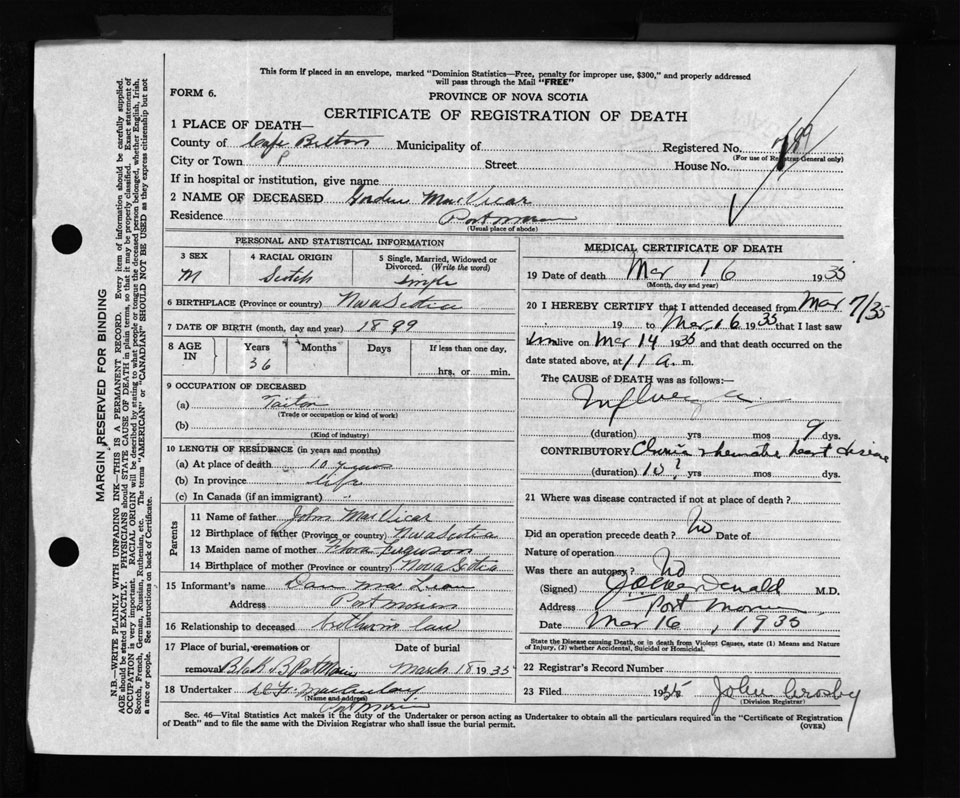 This form if placed in an envelope, marked "Dominion Statistics—Free, penalty for improper use, $300," and properly addressed
will pass through the Mail "FREE"
FORM 6.
PROVINCE OF NOVA SCOTIA
CERTIFICATE OF REGISTRATION OF DEATH
1 PLACE OF DEATH—
County of Cape Breton Municipality of Registered No. 789
(For use of Registrar General only)
City or Town Street House No.
If in hospital or institution, give name
2 NAME OF DECEASED Gorden MacVicar
Residence Port Morien
(Usual place of abode)
MARGIN RESERVED FOR BINDING
N.B.—WRITE PLAINLY WITH UNFADING INK—THIS IS A PERMANENT RECORD. Every item of information should be carefully supplied.
AGE should be stated EXACTLY. PHYSICIANS should STATE CAUSE OF DEATH in plain terms, so that it may be properly classified. Exact statement of
OCCUPATION is very important. RACIAL ORIGIN will be described by stating to what people or tongue the deceased person belonged, whether English, Irish,
Scotch, French, German, Russian, Ruthenian, etc. The terms "AMERICAN" or "CANADIAN" SHOULD NOT BE USED as they express citizenship but not
a race or people. See instructions on back of Certificate.
PERSONAL AND STATISTICAL INFORMATION
3 SEX
M
4 RACIAL ORIGIN
Scotch
5 Single, Married, Widowed or
Divorced. (Write the word)
single
6 BIRTHPLACE (Province or country) Nova Scotia
7 DATE OF BIRTH (month, day and year) 1899
8 AGE IN
Years Months Days If less than one day,
36
hrs. or min.
9 OCCUPATION OF DECEASED
(a)
(Trade or occupation or kind of work)
(b)
(Kind of industry)
10 LENGTH OF RESIDENCE (in years and months)
(a) At place of death 10 years
(b) In province life
(c) In Canada (if an immigrant)
Parents
11 Name of father John MacVicar
12 Birthplace of father (Province or country) Nova Scotia
13 Maiden name of mother Flora Ferguson
14 Birthplace of mother (Province or country) Nova Scotia
15 Informant's name Dan Mac
Address Port Morien
16 Relationship to deceased brother in law
17 Place of burial, cremation or Date of burial
removal Port Morien March 18 1935
18 Undertaker
(Name and address)
Port Morien
MEDICAL CERTIFICATE OF DEATH
19 Date of death Mar 16 1935
(Month, day and year)
20 I HEREBY CERTIFY that I attended deceased from Mar 7/35
19 to Mar 16 1935 that I last saw
him alive on Mar 14 1935 and that death occurred on the
date stated above, at 11 a. m.
The CAUSE of DEATH was as follows:—
Influenza
(duration) yrs mos 9 dys.
CONTRIBUTORY Chronic rheumatic heart disease
(duration) 10? yrs mos dys.
21 Where was disease contracted if not at place of death?
Did an operation precede death? No Date of
Nature of operation
Was there an autopsy? No
(Signed) MacDonald M.D.
Address Port Morien
Date Mar 16, 1935
State the Disease causing Death, or in death from Violent Causes, state (1) Means and Nature
of Injury, (2) whether Accidental, Suicidal or Homicidal.
22 Registrar's Record Number
23 Filed 1935 John Crosby
(Division Registrar)
Sec. 46—Vital Statistics Act makes it the duty of the Undertaker or person acting as Undertaker to obtain all the particulars required in the "Certificate of Registration
of Death" and to file the same with the Division Registrar who shall issue the burial permit.
(OVER)